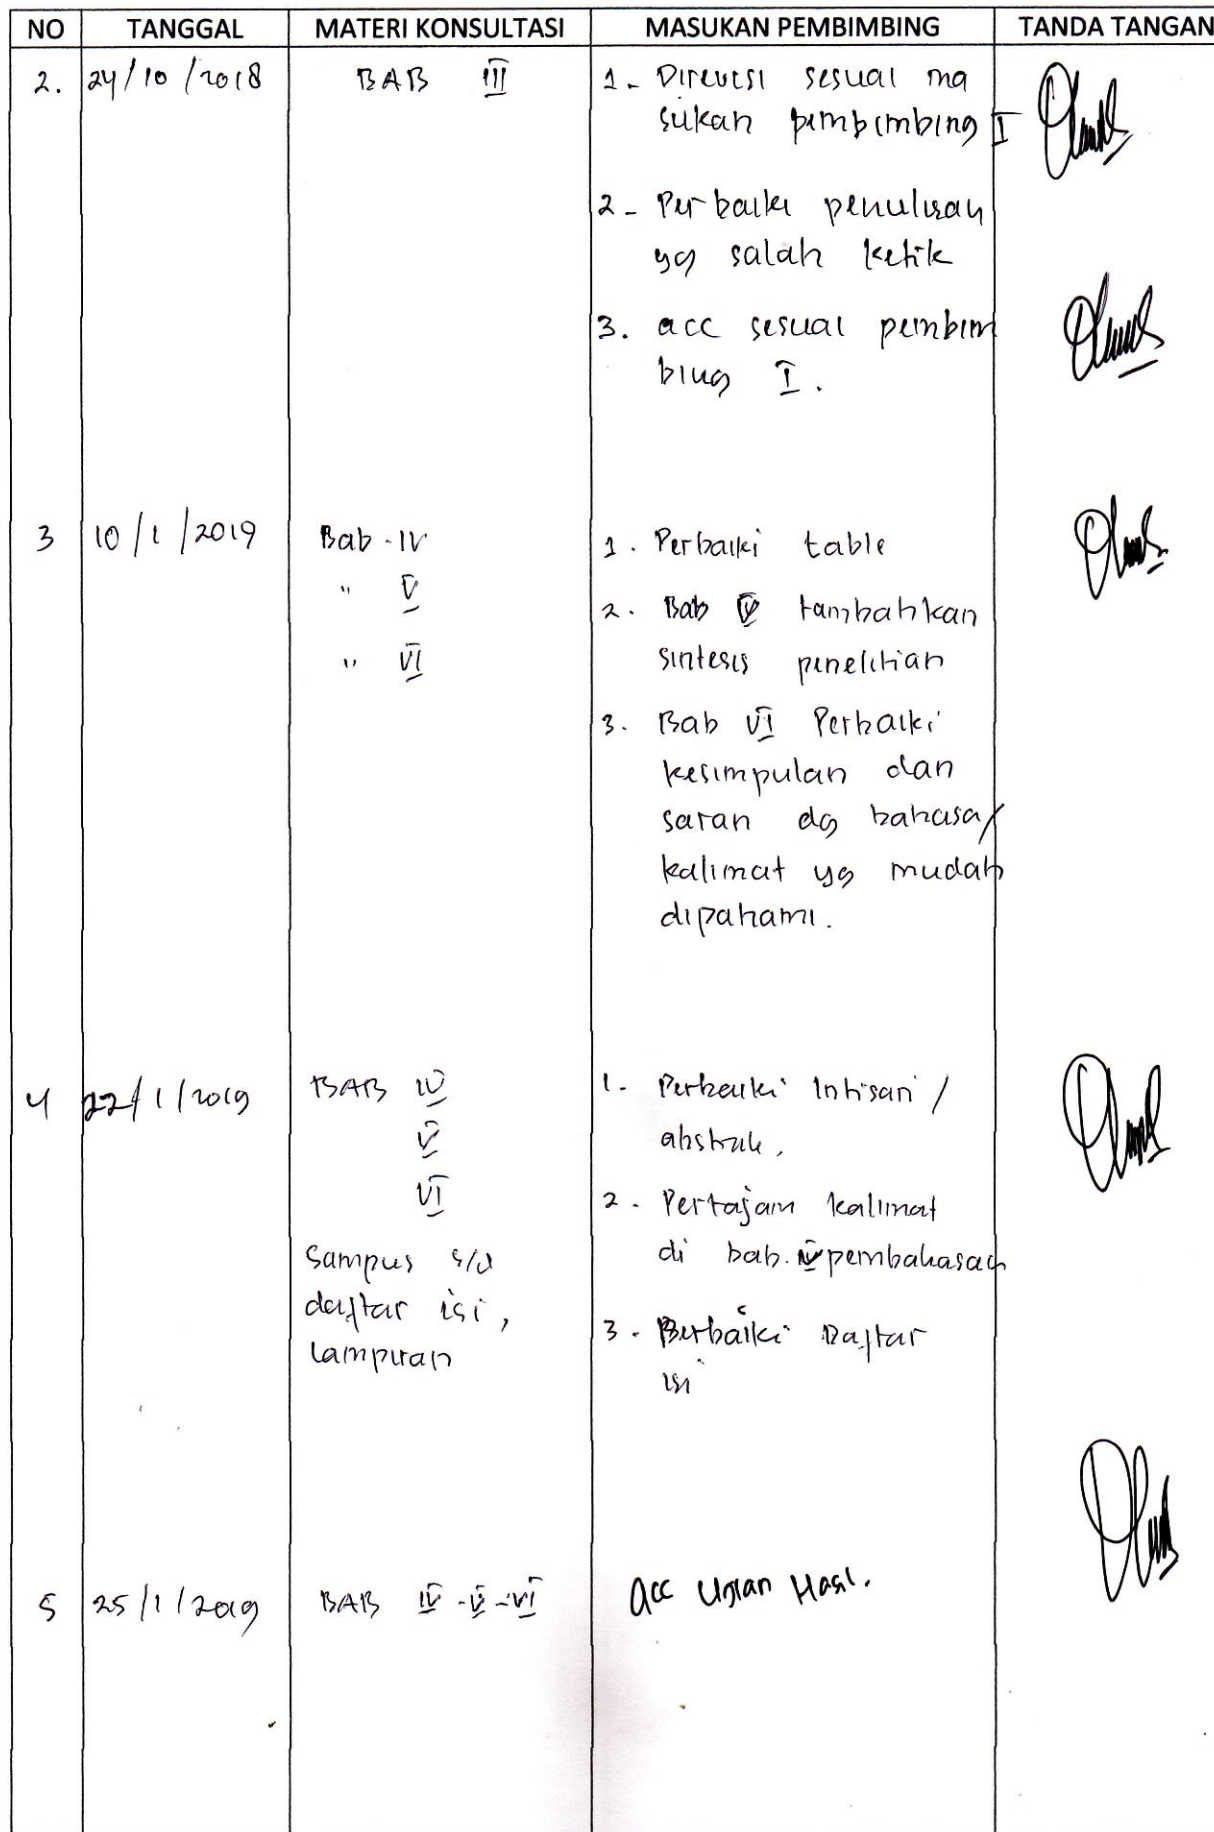 NO TANGGAL MATERI KONSULTASI MASUKAN PEMBIMBING TANDA TANGAN
2. 24/10/2018 BAB III 1- Direvisi sesuai ma
sukan pembimbing I
2- Perbaiki penulisan
yg salah ketik
3. acc sesuai pembim
bing I.
3 10/1/2019 Bab-IV 1. Perbaiki table
" V 2. Bab V tambahkan
" VI sintesis penelitian
3. Bab VI Perbaiki
kesimpulan dan
saran dg bahasa/
kalimat yg mudah
dipahami.
4 22/1/2019 BAB IV 1- Perbaiki Intisari /
V abstrak,
VI 2. Pertajam kalimat
Sampus s/d di bab. pembahasan
daftar isi, 3. Berbaiki Daftar
lampiran isi
5 25/1/2019 BAB IV-V-VI acc Ujian Hasil.